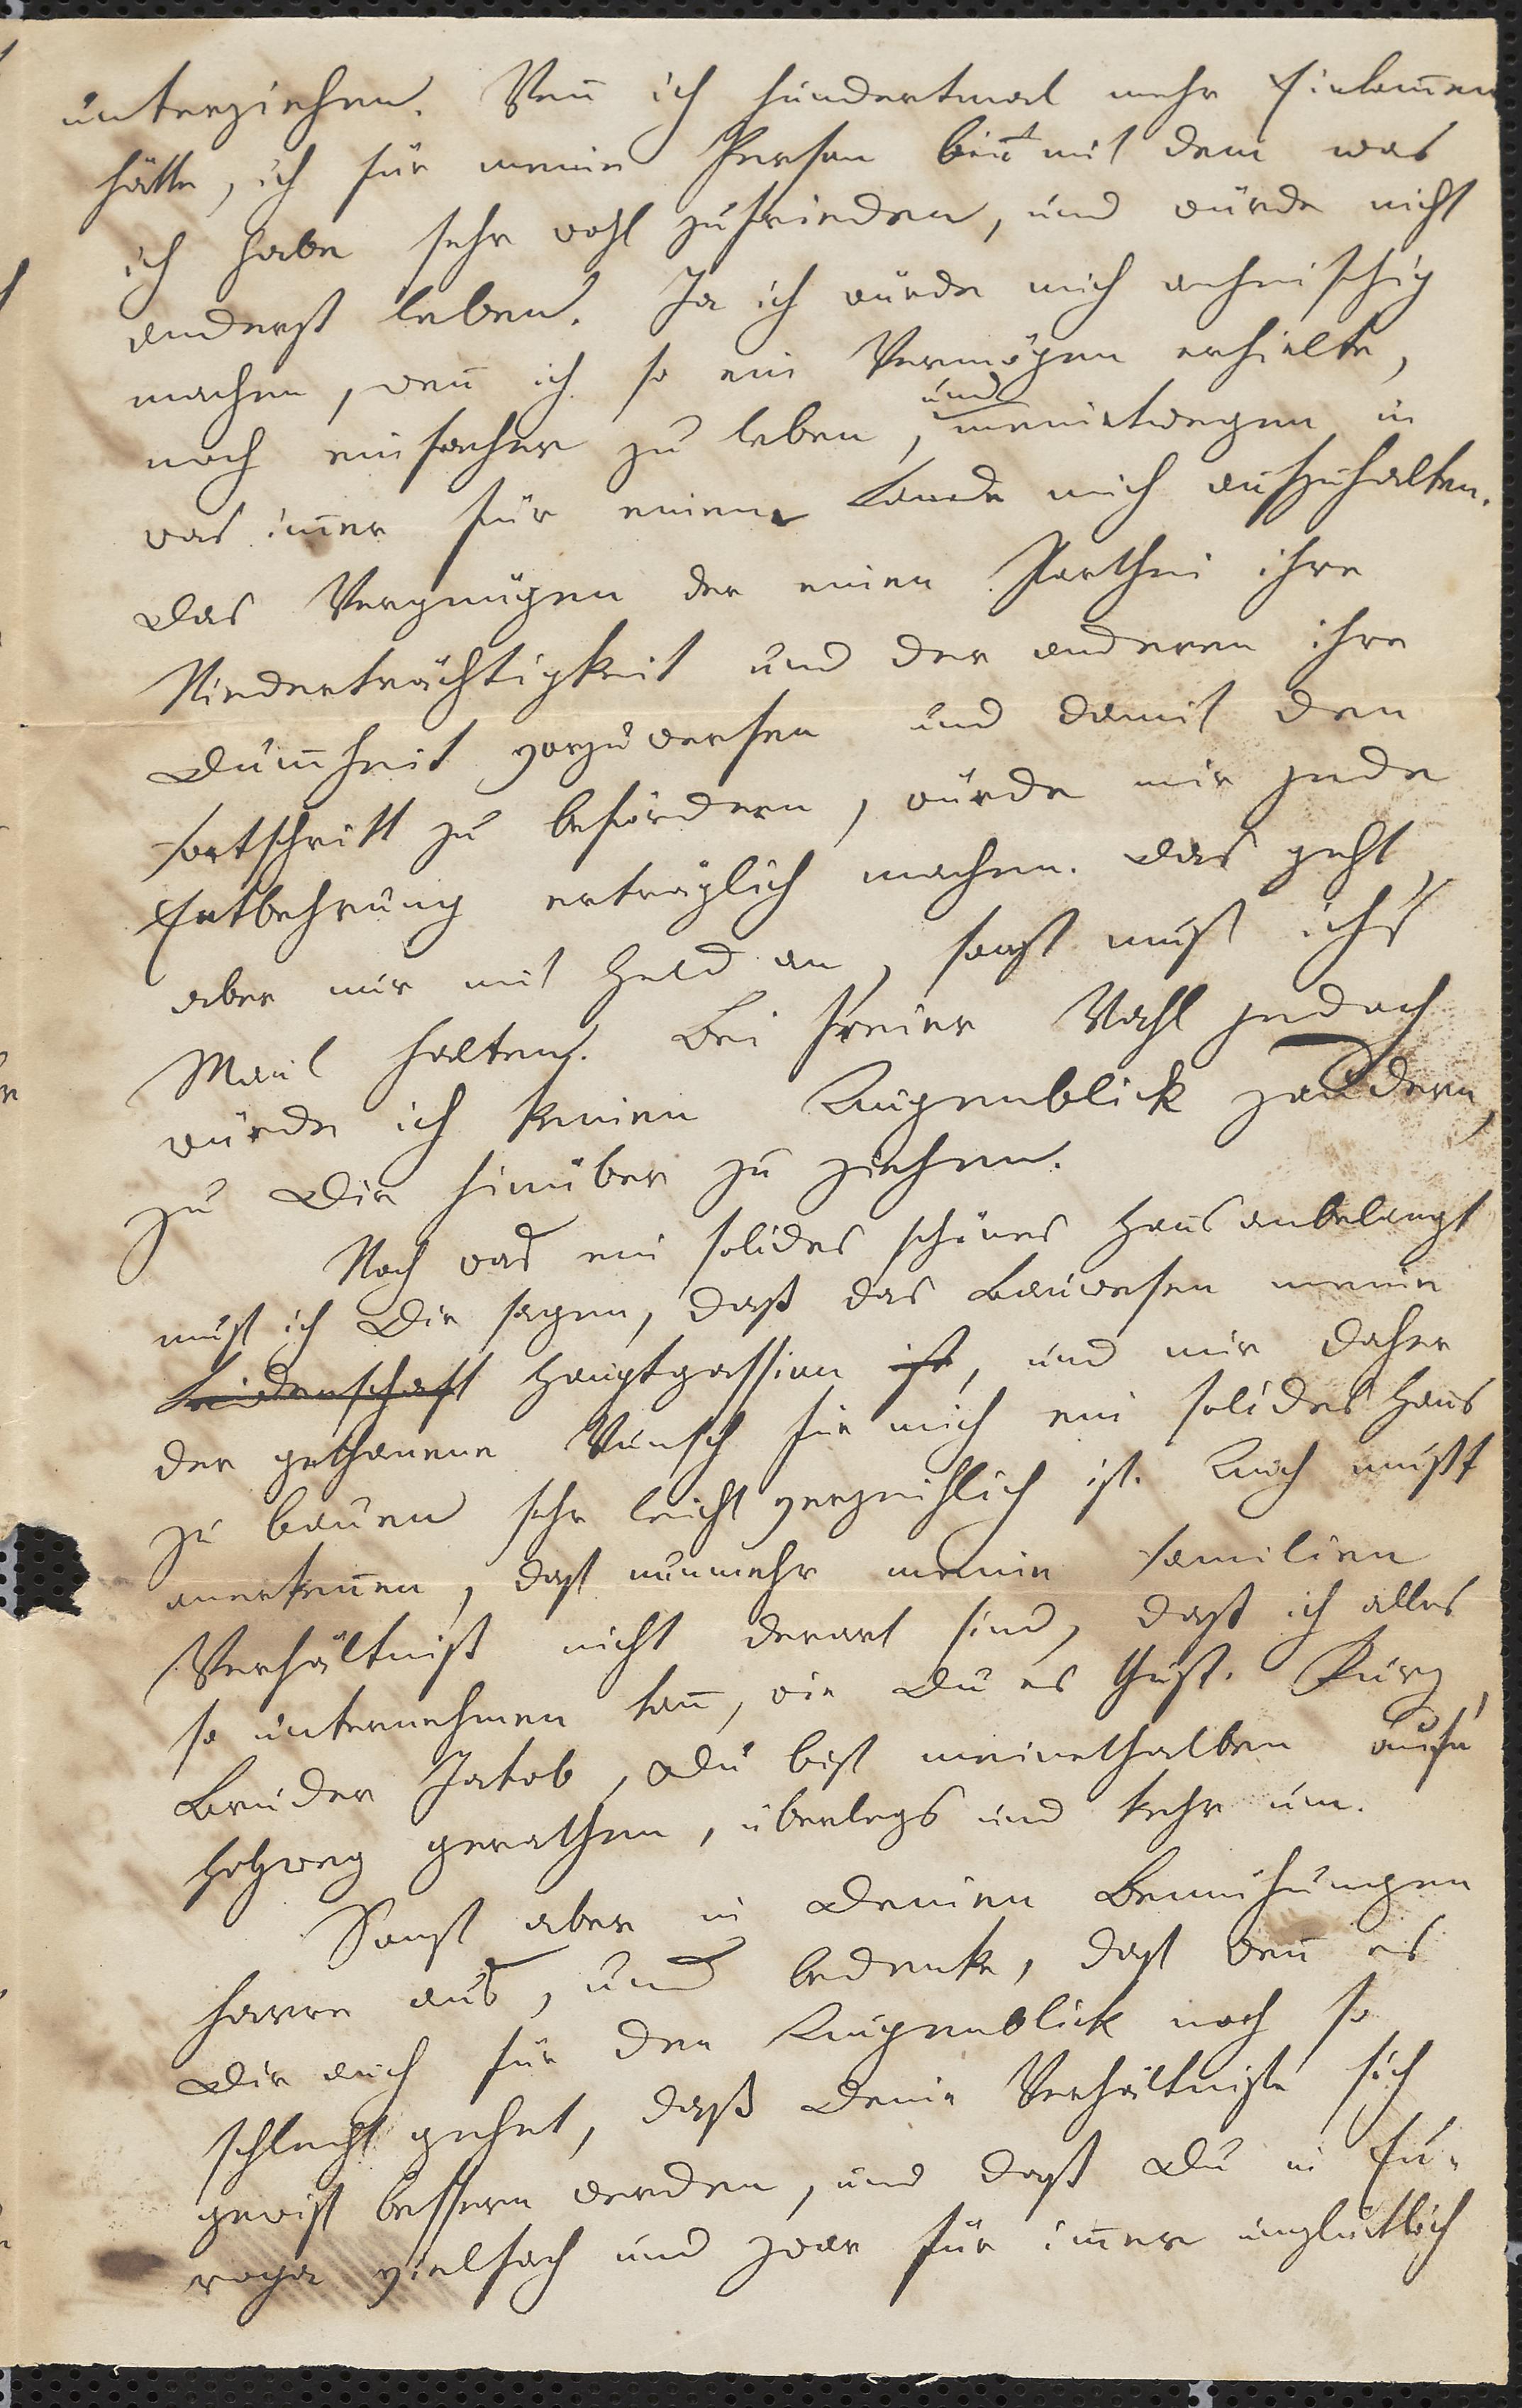 unterziehen. Wen̄ ich hundertmal mehr Einkom̄en
hätte, ich für meine Person bin mit dem was
ich habe sehr wohl zufrieden, und würde nicht
anderst leben. Ja ich würde mich anheischig
machen, wen̄ ich so ein Vermögen erhielte,
noch einfacher zu leben, und meinetwegen in
was im̄er für einem Lande mich aufzuhalten.
Das Vergnügen der einen Parthei ihre
Niederträchtigkeit und der anderen ihre
Dum̄heit vorzuwerfen und damit den
Fortschritt zu befördern, würde mir jede
Entbehrung erträglich machen. Das geht
aber nur mit Geld an, sonst muß ichs
Maul halten. Bei freier Wahl jedoch
würde ich keinen Augenblick zaudern,
zu Dir hinüber zu ziehen.
Noch was ein solides schönes Haus anbelangt
muß ich Dir sagen, daß das Bauwesen meine
Leidenschaft Hauptpassion ist, und mir daher
der gethanene Wunsch für mich ein solides Haus
zu bauen sehr leicht verzeihlich ist. Auch mußt
anerken̄en, daß nunmehr meine Familien
Verhältniß nicht derart sind, daß ich alles
so unternehmen kan̄, wie Du es thust. Kurz,
Bruder Jakob, Du bist meinethalben aufn
Holzweg gerathen, überlegs und kehr um.
Sonst aber in Deinen Bemühungen
harre aus, und bedenke, daß wen̄ es
Dir auch für den Augenblick noch so
schlecht gehet, daß Deine Verhältniße sich
gewiß bessern werden, und daß Du in Eu-
ropa vielfach und zwar für im̄er unglücklich